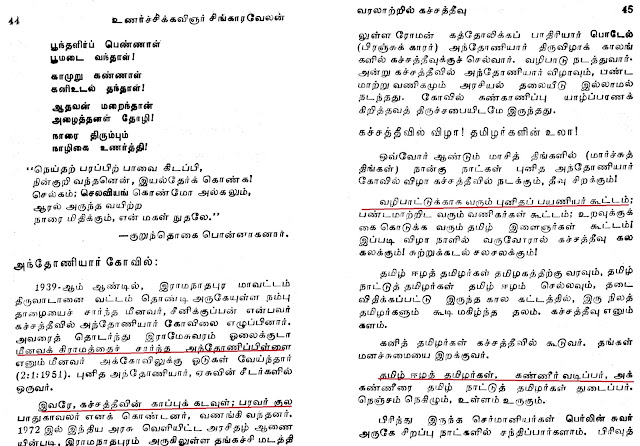 44 உணர்ச்சிக்கவிஞர் சிங்காரவேலன்
பூந்தளிர்ப் பெண்ணாள்
பூமடை வந்தாள்!
காமுறு கண்ணாள்
கனிஉடல் தந்தாள்!
ஆதவன் மறைந்தான்
அழைத்தனள் தோழி!
நாரை திரும்பும்
நாழிகை உணர்த்தி!
"நெய்தற் பரப்பிற் பாவை கிடப்பி,
நின்குறி வந்தனென், இயல்தேர்க் கொண்க!
செல்கம்; செலவியங் கொண்மோ அல்கலும்,
ஆரல் அருந்த வயிற்ற
நாரை மிதிக்கும், என் மகள் நுதலே."
—குறுந்தொகை பொன்னாகனார்.
அந்தோணியார் கோவில்:
1939-ஆம் ஆண்டில், இராமநாதபுர மாவட்டம்
திருவாடானை வட்டம் தொண்டி அருகேயுள்ள நம்பு
தாழையைச் சார்ந்த மீனவர், சீனிக்குப்பன் என்பவர்
கச்சத்தீவில் அந்தோணியார் கோவிலை எழுப்பினார்.
அவரைத் தொடர்ந்து இராமேசுவரம் ஓலைக்குடா
மீனவக் கிராமத்தைச் சார்ந்த அந்தோணிப்பிள்ளை
எனும் மீனவர் அக்கோவிலுக்கு ஓடுகள் வேய்ந்தார்
(2:1:1951). புனித அந்தோணியார், ஏசுவின் சீடர்களில்
ஒருவர்.
இவரே, கச்சத்தீவின் காப்புக் கடவுள்; பரவர் குல
பாதுகாவலர் எனக் கொண்டனர். வணங்கி வந்தனர்.
1972 இல் இந்திய அரசு வெளியிட்ட அரசிதழ் ஆணை
யின்படி, இராமநாதபுரம் அருகிலுள்ள தங்கச்சி மடத்தி
வரலாற்றில் கச்சத்தீவு 45
லுள்ள ரோமன் கத்தோலிக்கப் பாதிரியார் பொடேல்
(பிரஞ்சுக் காரர்) அந்தோணியார் திருவிழாக் காலங்
களில் கச்சத்தீவுக்குச் செல்வார். வழிபாடு நடத்துவார்.
அன்று கச்சத்தீவில் அந்தோணியார் விழாவும், பண்ட
மாற்று வணிகமும் அரசியல் தலையீடு இல்லாமல்
நடந்தது. கோவில் கண்காணிப்பு யாழ்ப்பாணக்
கிறித்தவத் திருச்சபையிடமே இருந்தது.
கச்சத்தீவில் விழா! தமிழர்களின் உலா!
ஒவ்வோர் ஆண்டும் மாசித் திங்களில் (மார்ச்சுத்
திங்கள்) நான்கு நாட்கள் புனித அந்தோணியார்
கோவில் விழா கச்சத்தீவில் நடக்கும், தீவு சிறக்கும்!
வழிபாட்டுக்காக வரும் புனிதப் பயணியர் கூட்டம்;
பண்டமாற்றிட வரும் வணிகர்கள் கூட்டம்; உறவுக்குக்
கை கொடுக்க வரும் தமிழ் இளைஞர்கள் கூட்டம்!
இப்படி விழா நாளில் வருவோரால் கச்சத்தீவு கல
கலக்கும்! சுற்றுக்கடல் சலசலக்கும்!
தமிழ் ஈழத் தமிழர்கள் தமிழகத்திற்கு வரவும், தமிழ்
நாட்டுத் தமிழர்கள் தமிழ் ஈழம் செல்லவும், தடை
விதிக்கப்பட்டு இருந்த கால கட்டத்தில், இரு நிலத்
தமிழர்களும் கூடி மகிழ்ந்த தலம். கச்சத்தீவு எனும்
களம்.
கனித் தமிழர்கள் கச்சத்தீவில் கூடுவர். தங்கள்
மனச்சுமையை இறக்குவர்.
தமிழ் ஈழத் தமிழர்கள். கண்ணீர் வடிப்பர், அக்
கண்ணீரை தமிழ் நாட்டுத் தமிழர்கள் துடைப்பர்.
நெஞ்சம் நெகிழும், உள்ளம் உருகும்.
பிரிந்து இருக்க செர்மானியர்கள் பெர்லின் சுவர்
அருகே சிறப்பு நாட்களில் சந்திப்பார்களாம். பிரிவுத்